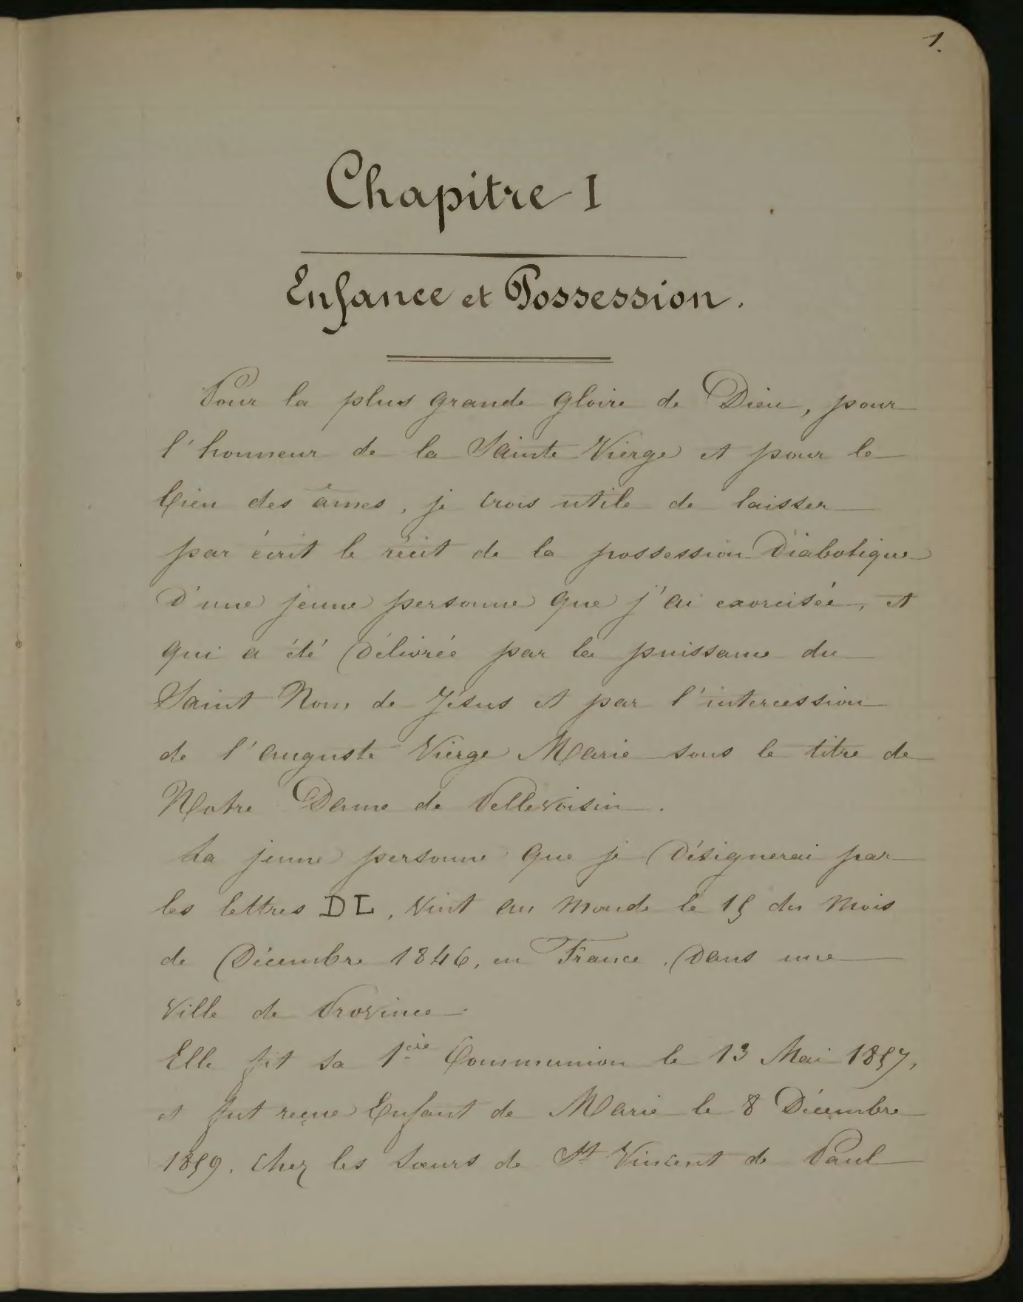 1.
Chapitre I
Enfance et Possession.
Pour la plus grande gloire de Dieu, pour
l'honneur de la Sainte Vierge et pour le
bien des âmes, je crois utile de laisser
par écrit le récit de la possession Diabolique
D'une jeune personne que j'ai exorcisée, et
qui a été Délivrée par la puissance du
Saint Nom de Jésus et par l'intercession
de l'auguste Vierge Marie sous le titre de
Notre Dame de Pellevoisin.
La jeune personne que je Désignerai par
les lettres DL, vint au monde le 15 du mois
de Décembre 1846, en France, Dans une
ville de Province.
Elle fit sa 1ère Communion le 13 Mai 1857,
et fut reçue Enfant de Marie le 8 Décembre
1859, chez les Sœurs de St Vincent de Paul